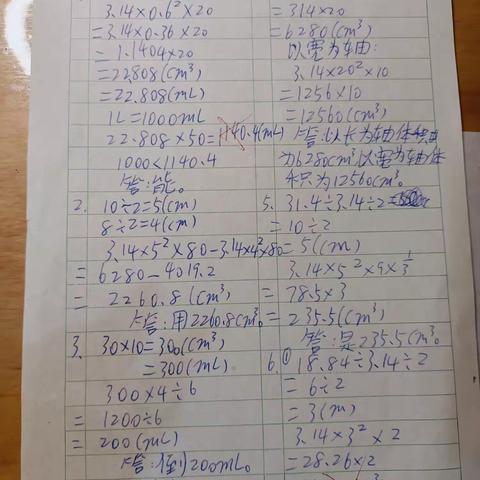 3.14×0.6²×20
=3.14×0.36×20
=1.1404×20
=22.808(cm³)
=22.808(mL)
1L=1000mL
22.808×50=1140.4(mL)
1000<1140.4
答:能。
2. 10÷2=5(cm)
8÷2=4(cm)
3.14×5²×80-3.14×4²×80
=6280-4019.2
=2260.8(cm³)
答:用2260.8cm³。
3. 30×10=300(cm³)
=300(mL)
300×4÷6
=1200÷6
=200(mL)
答:倒200mL。
=314×20
=6280(cm³)
以宽为轴:
3.14×20²×10
=1256×10
=12560(cm³)
答:以长为轴体积
为6280cm³,以宽为轴体
积为12560cm³。
5. 31.4÷3.14÷2=
=10÷2
=5(cm)
3.14×5²×9×1/3
=78.5×3
=235.5(cm³)
答:是235.5cm³。
6. ①18.84÷3.14÷2
=6÷2
=3(m)
3.14×3²×2
=28.26×2